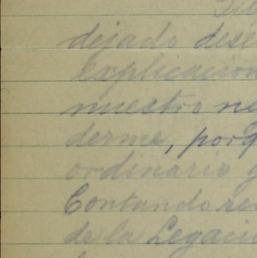 dejado dese
Explicacion
nuestro ne
derme, porq
ordinario y
Contando re
de la Legaci